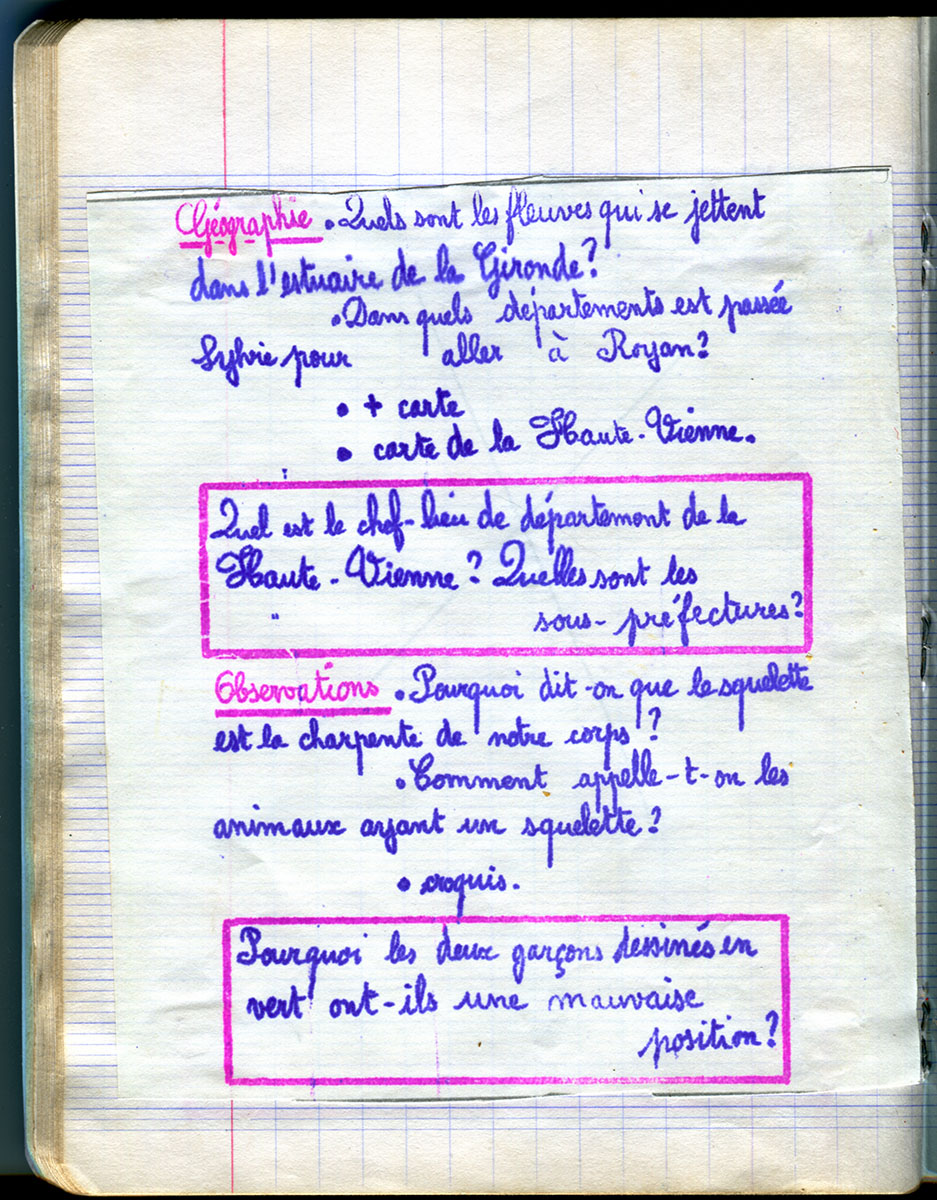 Géographie • Quels sont les fleuves qui se jettent
dans l'estuaire de la Gironde?
• Dans quels départements est passée
Sylvie pour aller à Royan?
• + carte
• carte de la Haute-Vienne.
Quel est le chef-lieu de département de la
Haute-Vienne? Quelles sont les
sous-préfectures?
Observations • Pourquoi dit-on que le squelette
est la charpente de notre corps?
• Comment appelle-t-on les
animaux ayant un squelette?
• croquis.
Pourquoi les deux garçons dessinés en
vert ont-ils une mauvaise
position?